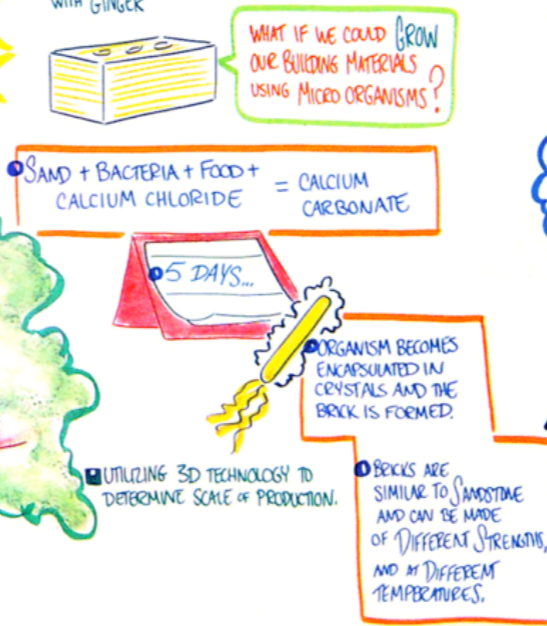 WITH GINGER
WHAT IF WE COULD GROW
OUR BUILDING MATERIALS
USING MICRO ORGANISMS?
SAND + BACTERIA + FOOD +
CALCIUM CHLORIDE = CALCIUM
CARBONATE
5 DAYS...
ORGANISM BECOMES
ENCAPSULATED IN
CRYSTALS AND THE
BRICK IS FORMED.
UTILIZING 3D TECHNOLOGY TO
DETERMINE SCALE OF PRODUCTION.
BRICKS ARE
SIMILAR TO SANDSTONE
AND CAN BE MADE
OF DIFFERENT STRENGTHS,
AND AT DIFFERENT
TEMPERATURES.